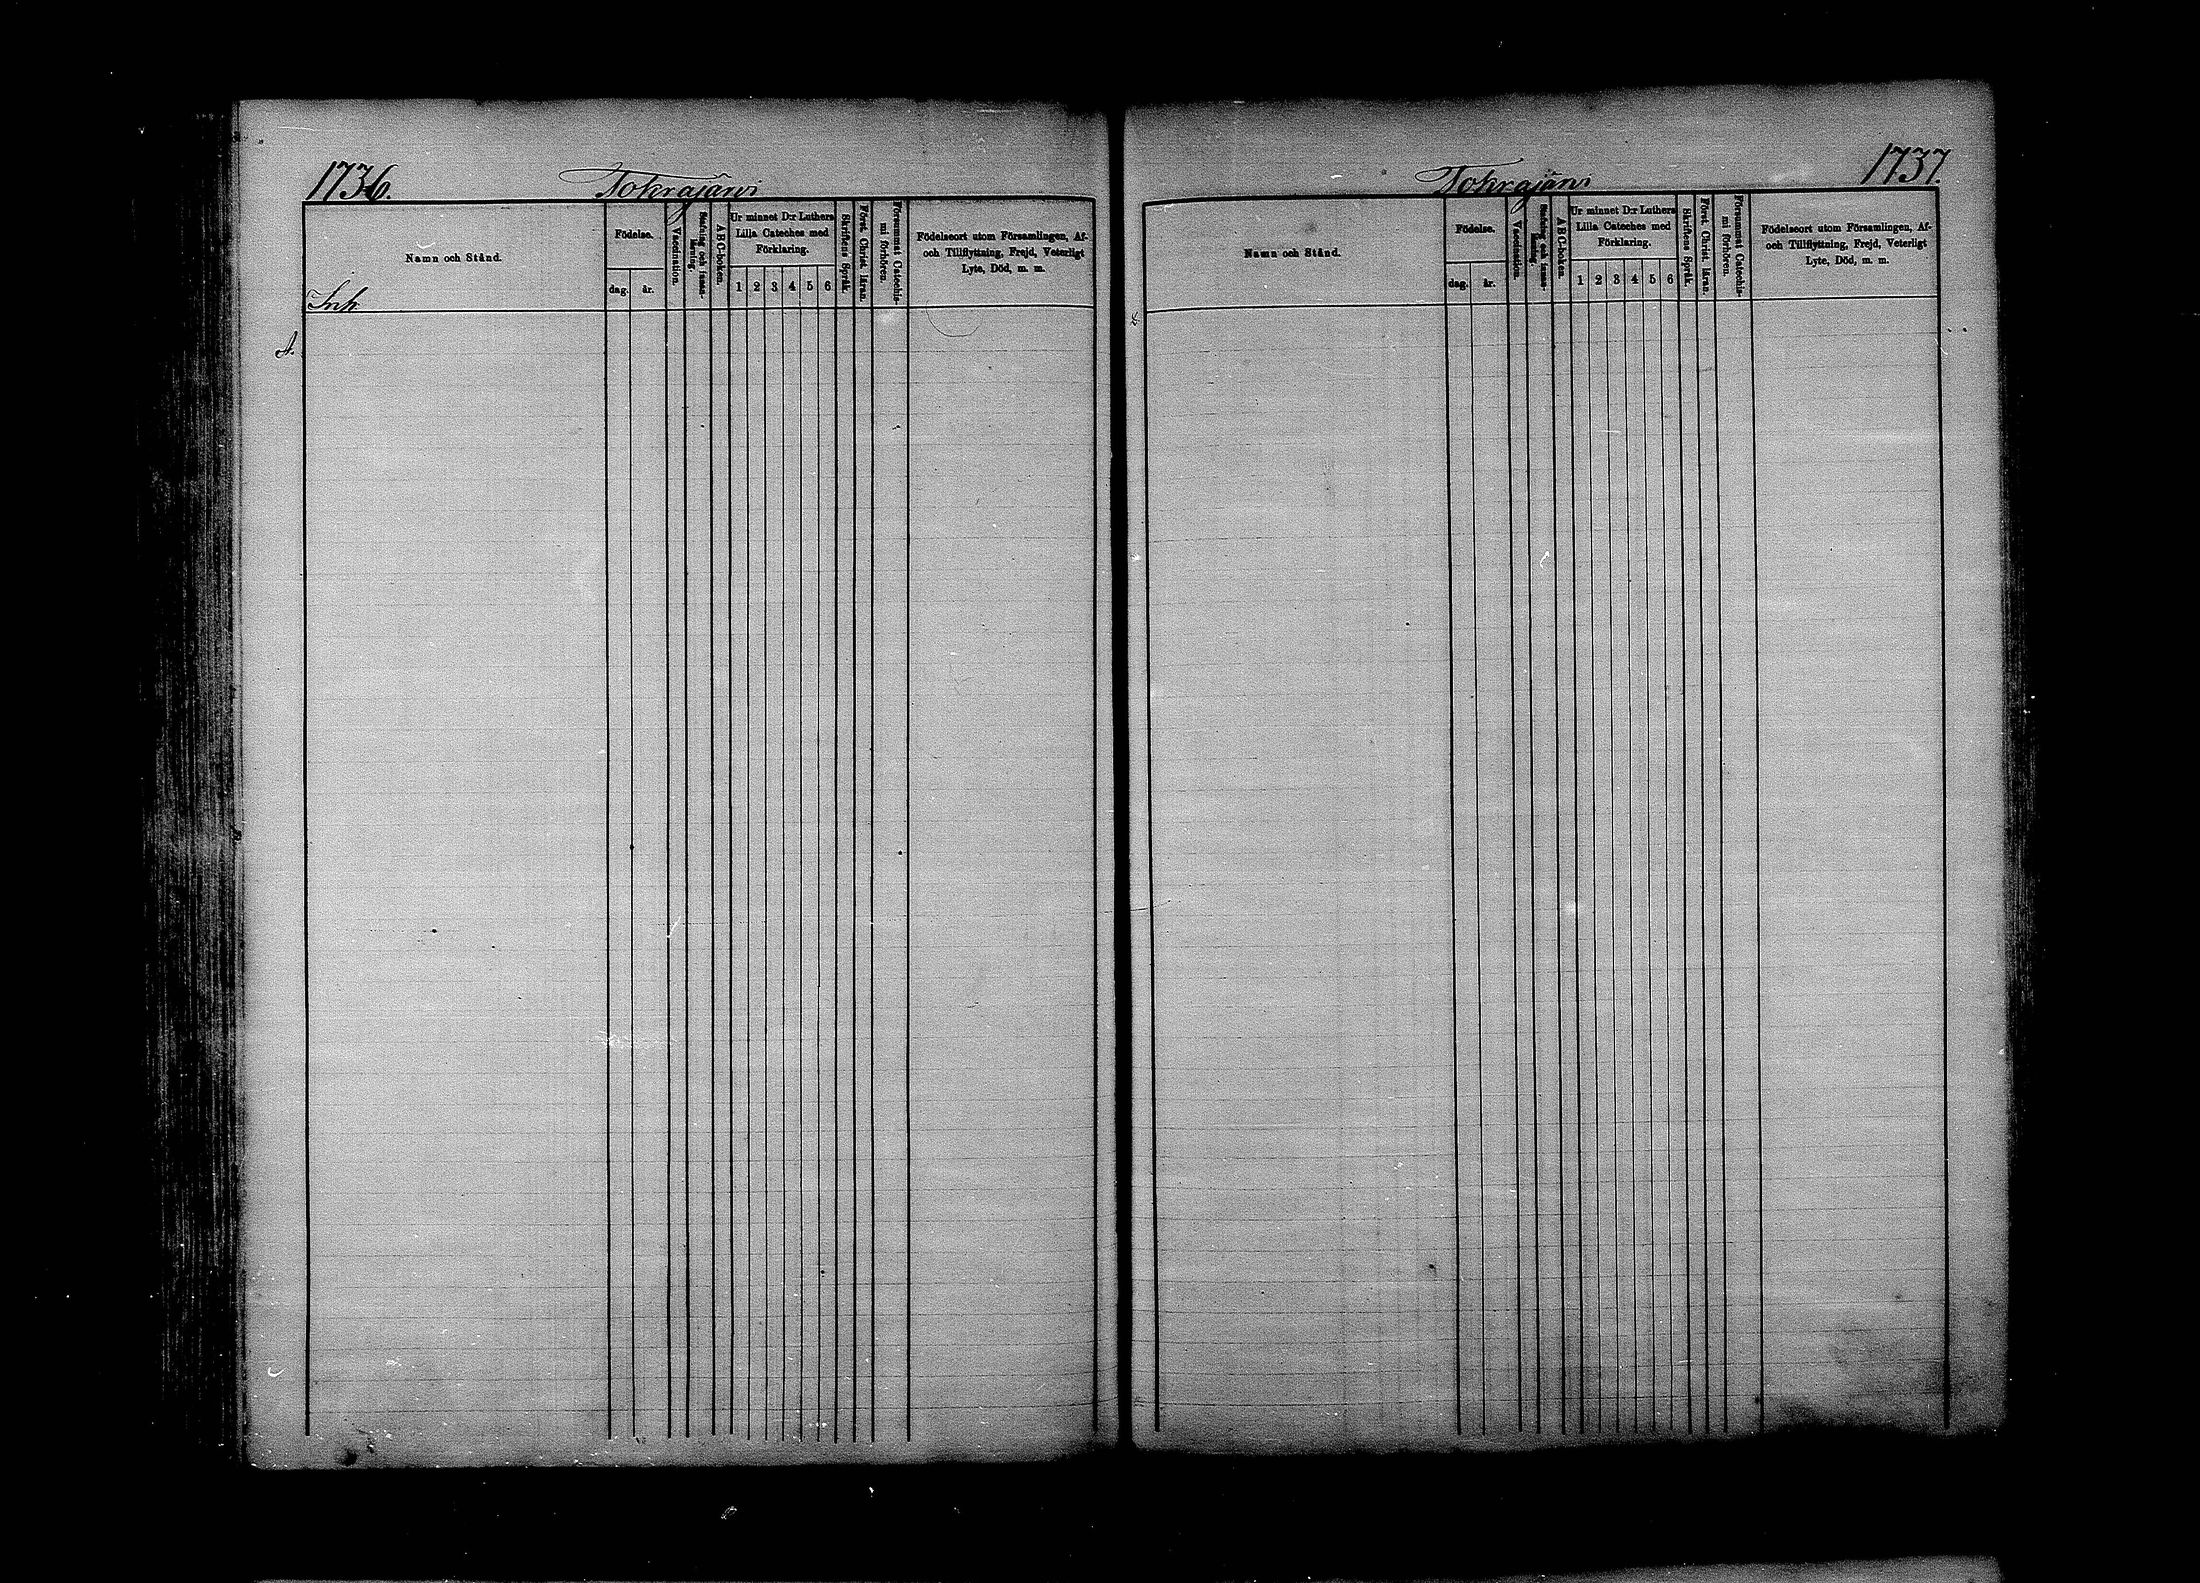 1736.
Tohrajärvi
Namn och Stånd.
Födelse.
dag.
år.
Vaccination.
Stafning och innan-
läsning.
A B C-boken.
Ur minnet D:r Luthers
Lilla Cateches med
Förklaring.
1 2 3 4 5 6
Skriftens Språk.
Först. Christ. läran.
Försummat Catechis-
mi förhören.
Födelseort utom Församlingen, Af-
och Tillflyttning, Frejd, Veterligt
Lyte, Död, m. m.
Inh.
A.
1737.
Tohrajärvi
Namn och Stånd.
Födelse.
dag.
år.
Vaccination.
Stafning och innan-
läsning.
A B C-boken.
Ur minnet D:r Luthers
Lilla Cateches med
Förklaring.
1 2 3 4 5 6
Skriftens Språk.
Först. Christ. läran.
Försummat Catechis-
mi förhören.
Födelseort utom Församlingen, Af-
och Tillflyttning, Frejd, Veterligt
Lyte, Död, m. m.